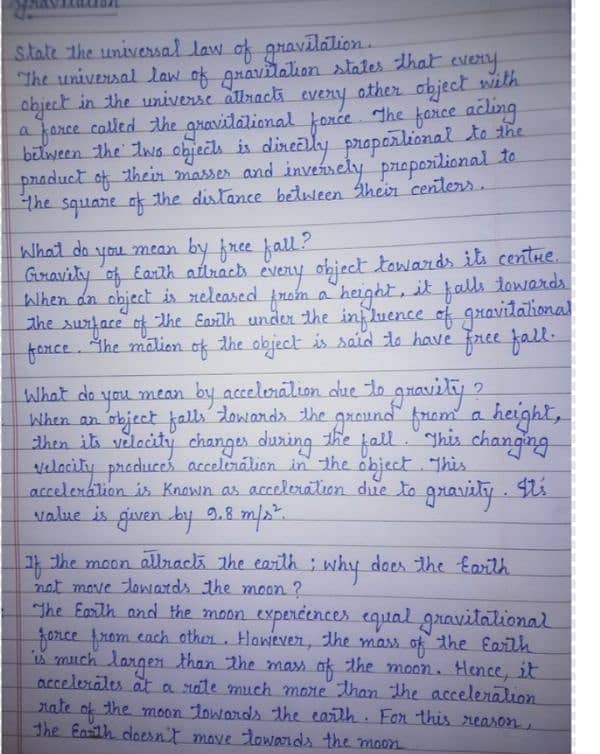 Gravitation
State the universal law of gravitation.
The universal law of gravitation states that every
object in the universe attracts every other object with
a force called the gravitational force. The force acting
between the two objects is directly proportional to the
product of their masses and inversely proportional to
the square of the distance between their centers.
What do you mean by free fall?
Gravity of Earth attracts every object towards its centre.
When an object is released from a height, it falls towards
the surface of the Earth under the influence of gravitational
force. The motion of the object is said to have free fall.
What do you mean by acceleration due to gravity?
When an object falls towards the ground from a height,
then its velocity changes during the fall. This changing
velocity produces acceleration in the object. This
acceleration is known as acceleration due to gravity. Its
value is given by 9.8 m/s².
If the moon attracts the earth; why does the Earth
not move towards the moon?
The Earth and the moon experiences equal gravitational
force from each other. However, the mass of the Earth
is much larger than the mass of the moon. Hence, it
accelerates at a rate much more than the acceleration
rate of the moon towards the earth. For this reason,
the Earth doesn't move towards the moon